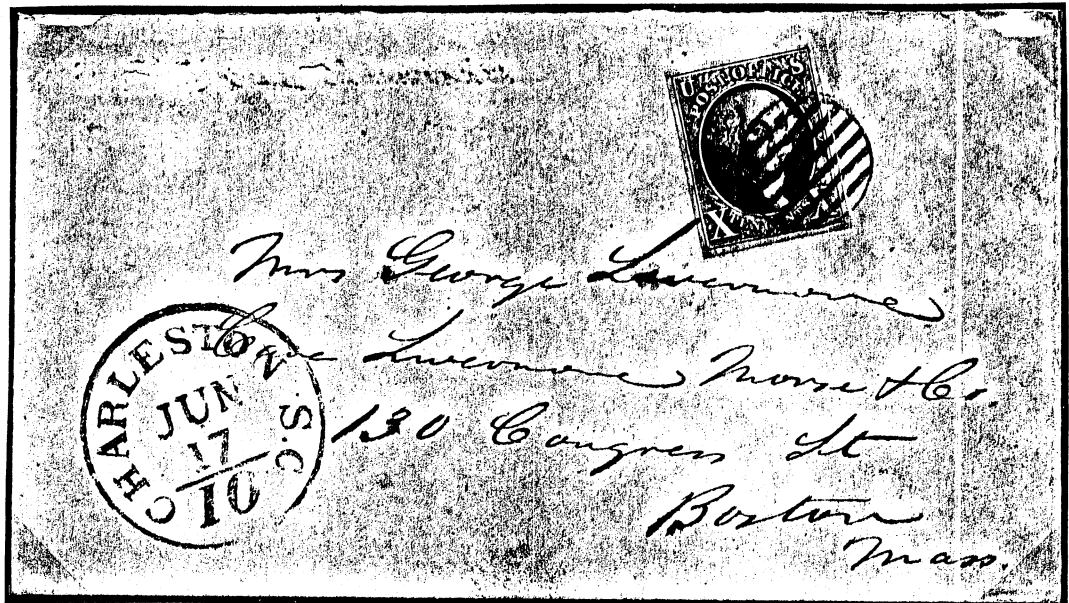 U.S
POST OFFICE
X
Mrs George Livermore
Care Livermore Morse & Co.
130 Congress St
Boston
Mass.
CHARLESTON S.C
JUN
17
10